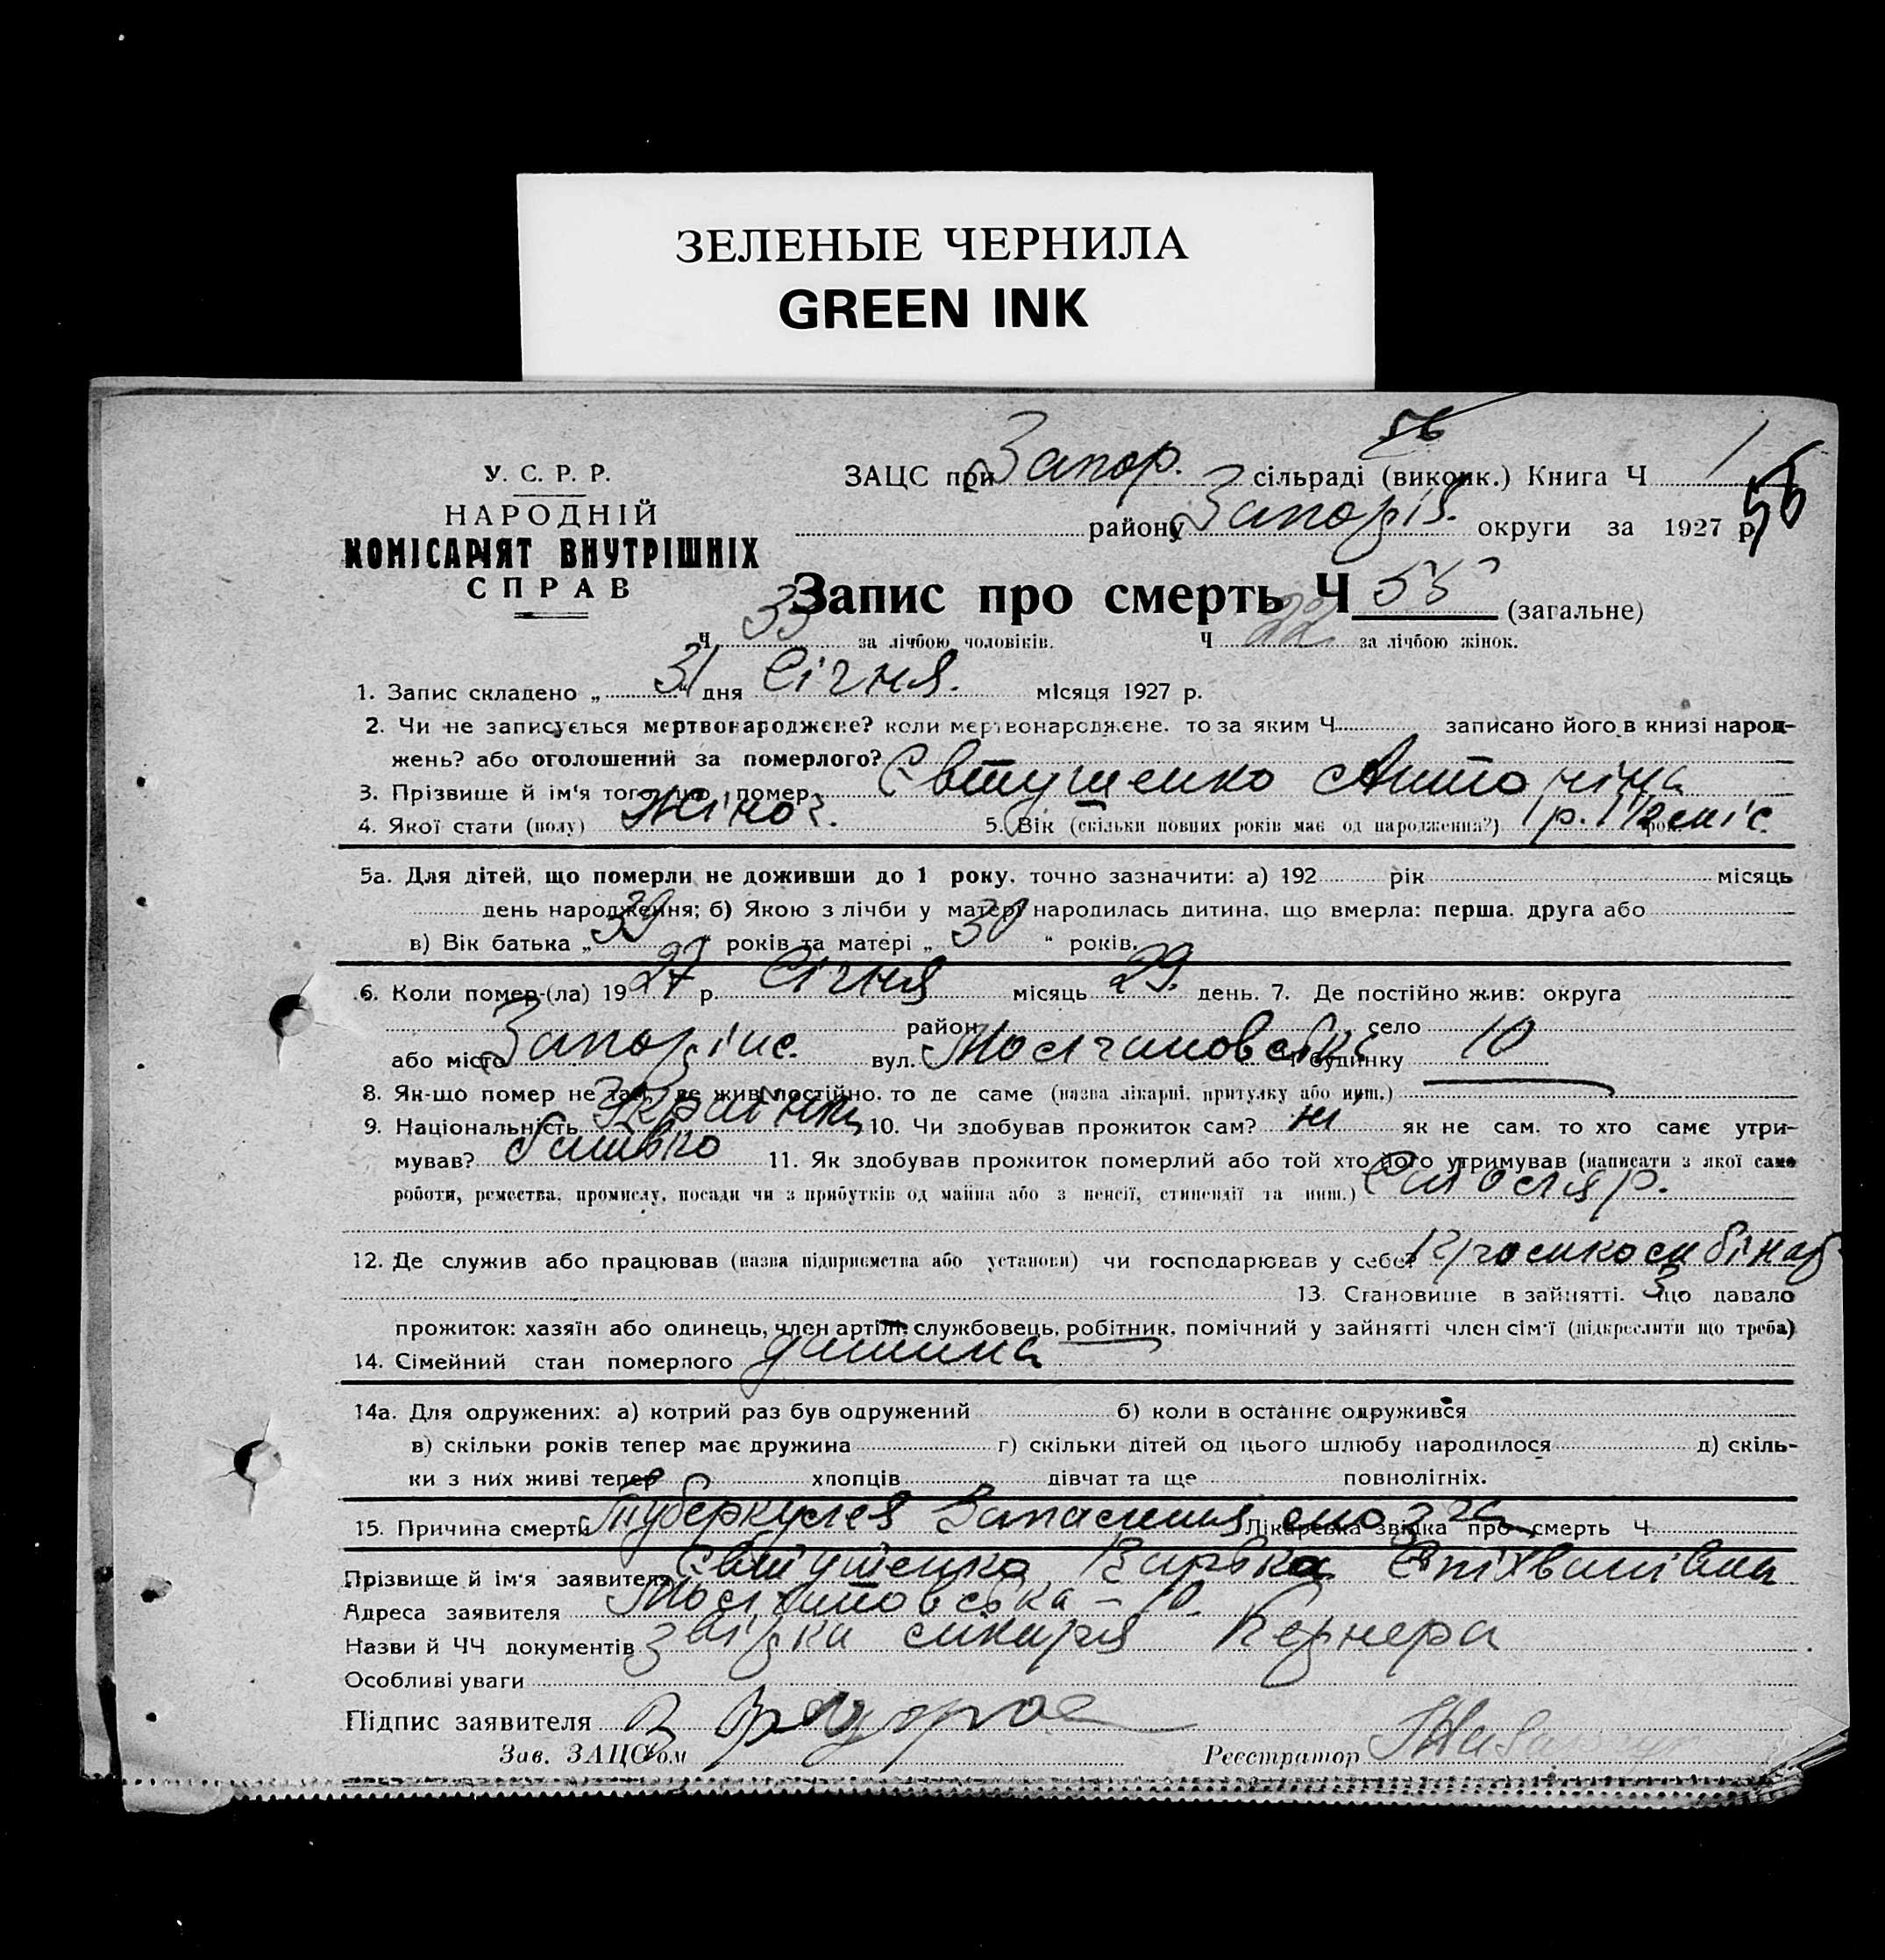 ЗЕЛЕНЫЕ ЧЕРНИЛА
GREEN INK
56
У. С. Р. Р.
НАРОДНІЙ
КОМІСАРІЯТ ВНУТРІШНІХ
СПРАВ
ЗАЦС при Запор. сільраді (виконк.) Книга Ч 1
району Запоріз. округи за 1927 р. 56
Запис про смерть Ч 55 (загальне)
Ч 33 за лічбою чоловіків. Ч 22 за лічбою жінок.
1. Запис складено „ 31 " дня Січня. місяця 1927 р.
2. Чи не записується мертвонароджене? коли мертвонароджене. то за яким Ч записано його в книзі народ-
жень? або оголошений за померлого?
3. Прізвище й ім'я того, що помер Євтушенко Антоніна
4. Якої стати (полу) Жіноч. 5. Вік (скільки повних років має од народження?) 1 р. 1 1/2 міс.
5а. Для дітей, що померли не доживши до 1 року, точно зазначити: а) 192 рік місяць
день народження; б) Якою з лічби у матері народилась дитина, що вмерла: перша, друга або
в) Вік батька „ 39 " років та матері „ 30 " років.
6. Коли помер-(ла) 1927 р. Січня місяць 29. день. 7. Де постійно жив: округа
район село
або місто Запоріжж. вул. будинку 10
8. Як-що помер не там, де жив постійно, то де саме (назва лікарні, притулку або инш.)
9. Національність Українка 10. Чи здобував прожиток сам? ні як не сам, то хто саме утри-
мував? батько 11. Як здобував прожиток померлий або той хто його утримував (написати з якої саме
роботи, ремества, промислу, посади чи з прибутків од майна або з пенсії, стипендії та инш.) Столяр.
12. Де служив або працював (назва підприємства або установи) чи господарював у себе?
13. Становище в зайнятті, що давало
прожиток: хазяїн або одинець, член артілі, службовець, робітник, помічний у зайнятті член сім'ї (підкреслити що треба)
14. Сімейний стан померлого дитина
14а. Для одружених: а) котрий раз був одружений б) коли в останнє одружився
в) скільки років тепер має дружина г) скільки дітей од цього шлюбу народилося д) скіль-
ки з них живі тепер хлопців дівчат та ще повнолітніх.
15. Причина смерти Туберкулез Запалення мозга Лікарська звідка про смерть Ч
Прізвище й ім'я заявителя Євтушенко Варвка Єпіхванівна
Адреса заявителя 10.
Назви й ЧЧ документів звідка лікаря Кернера
Особливі уваги
Підпис заявителя
Зав. ЗАЦС'ом Реєстратор